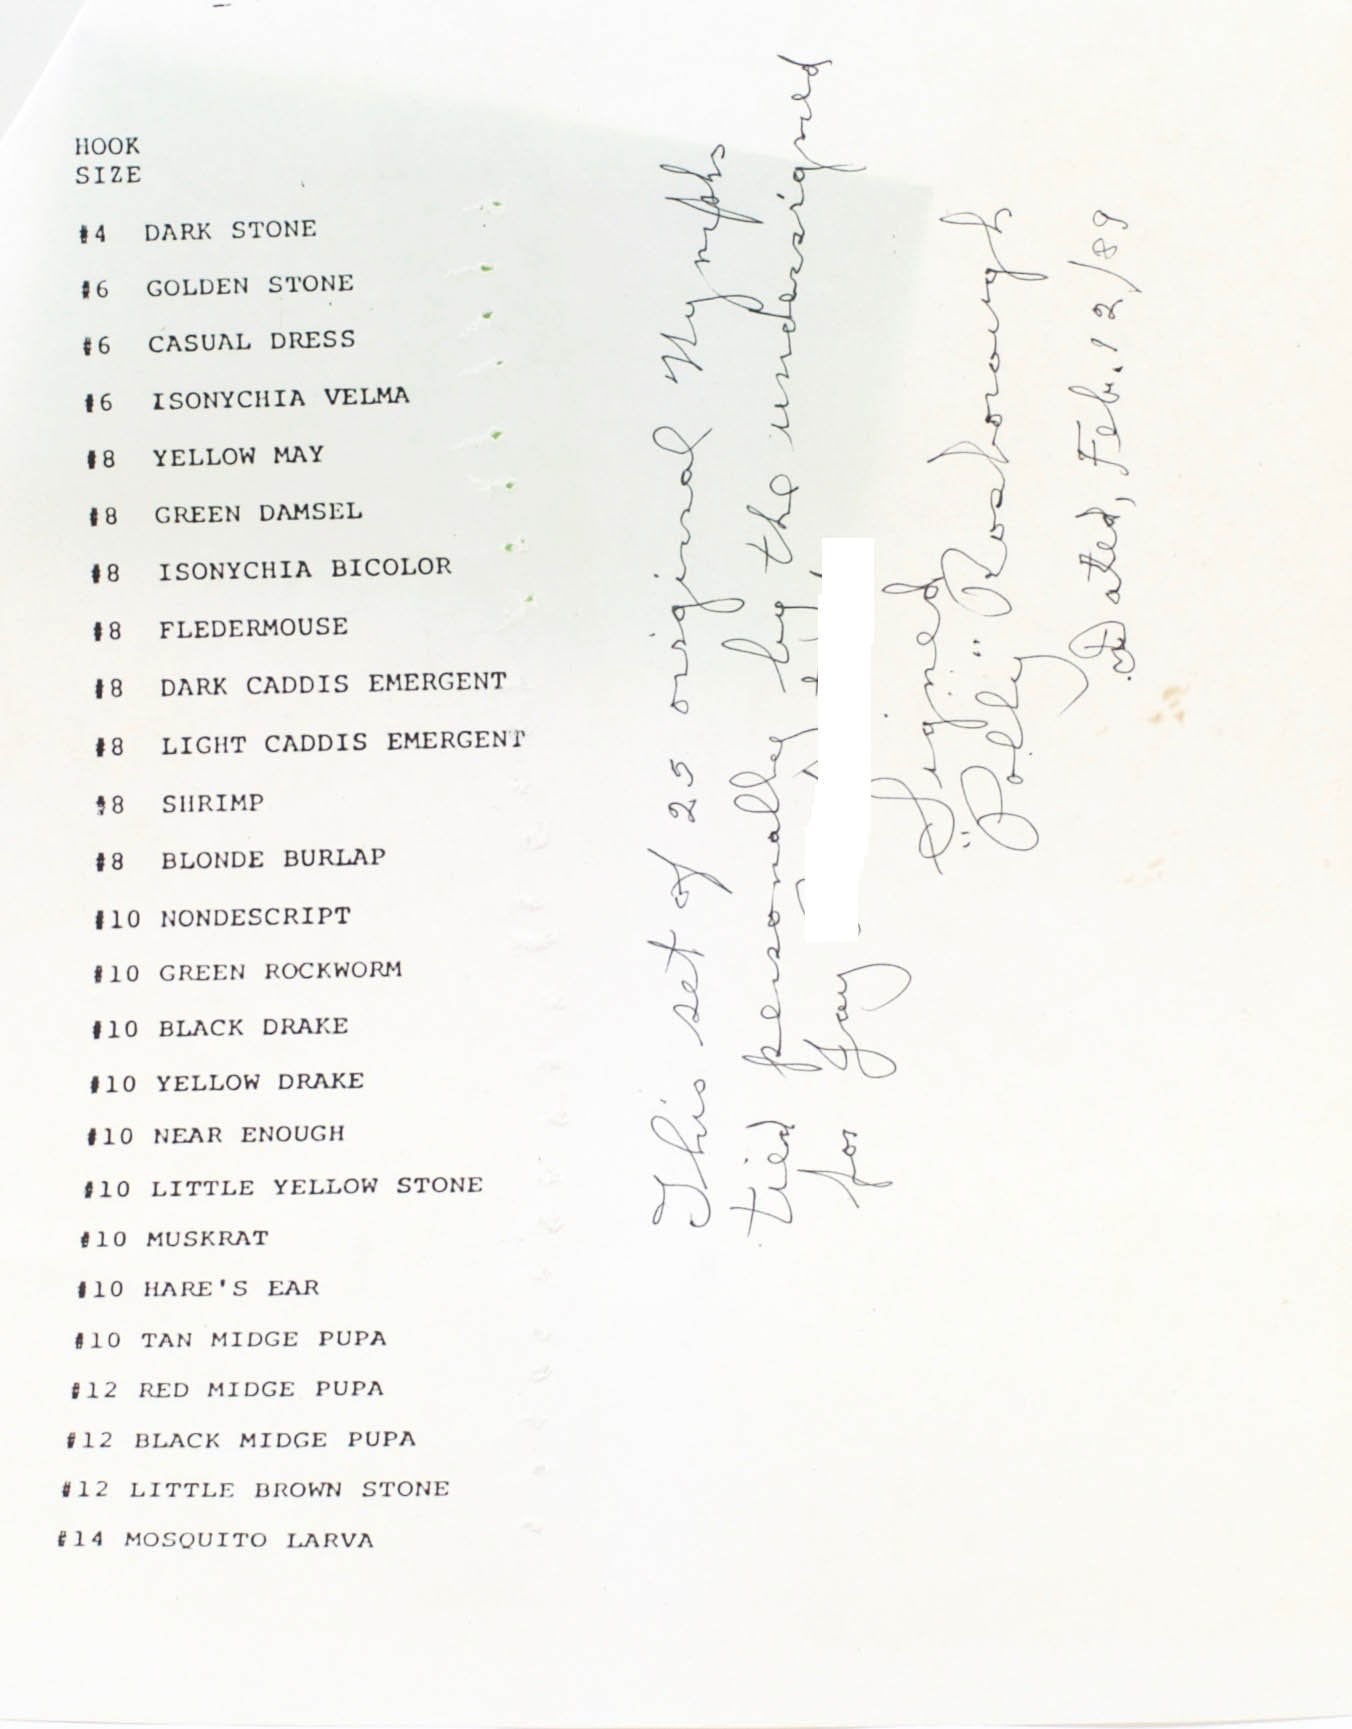 HOOK
SIZE
#4 DARK STONE
#6 GOLDEN STONE
#6 CASUAL DRESS
#6 ISONYCHIA VELMA
#8 YELLOW MAY
#8 GREEN DAMSEL
#8 ISONYCHIA BICOLOR
#8 FLEDERMOUSE
#8 DARK CADDIS EMERGENT
#8 LIGHT CADDIS EMERGENT
#8 SHRIMP
#8 BLONDE BURLAP
#10 NONDESCRIPT
#10 GREEN ROCKWORM
#10 BLACK DRAKE
#10 YELLOW DRAKE
#10 NEAR ENOUGH
#10 LITTLE YELLOW STONE
#10 MUSKRAT
#10 HARE'S EAR
#10 TAN MIDGE PUPA
#12 RED MIDGE PUPA
#12 BLACK MIDGE PUPA
#12 LITTLE BROWN STONE
#14 MOSQUITO LARVA
This set of 25 original Nymphs
tied personalley by the undersigned
for
Signed
"Polly" Rosborough
Dated, Feb. 12/89